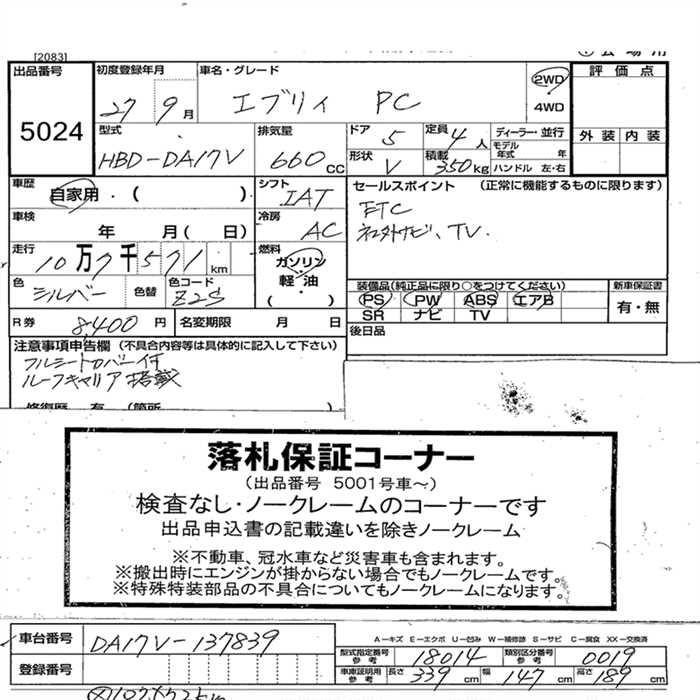 [2083]
出品番号 5024
初度登録年月 27 9月
車名・グレード エブリィ PC
2WD
4WD
評価点
外装 内装
型式 HBD-DA17V
排気量 660 CC
ドア 5
定員 4人
ディーラー・並行
モデル年式 年
形状 V
積載 350kg
ハンドル 左・右
車歴 自家用・( )
シフト IAT
セールスポイント (正常に機能するものに限ります)
ETC
社外ナビ、TV.
車検 年 月( 日)
冷房 AC
走行 10万7千571km
燃料 ガソリン
軽油
( )
色 シルバー
色替
色コード Z2S
装備品(純正品に限り○をつけてください)
PS PW ABS エアB
SR ナビ TV
新車保証書
有・無
R券 8,400円
名変期限 月 日
後日品
注意事項申告欄(不具合内容等は具体的に記入して下さい)
フルシートカバー付
ルーフキャリア搭載
修復歴 有 (箇所 )
落札保証コーナー
(出品番号 5001号車～)
検査なし・ノークレームのコーナーです
出品申込書の記載違いを除きノークレーム
※不動車、冠水車など災害車も含まれます。
※搬出時にエンジンが掛からない場合でもノークレームです。
※特殊特装部品の不具合についてもノークレームになります。
車台番号 DA17V-137839
登録番号
A-キズ E-エクボ U-凹み W-補修跡 S-サビ C-腐食 XX-交換済
型式指定番号 参考 18014
類別区分番号 参考 0019
車庫証明用 参考 長さ 339cm 幅 147cm 高さ 189cm